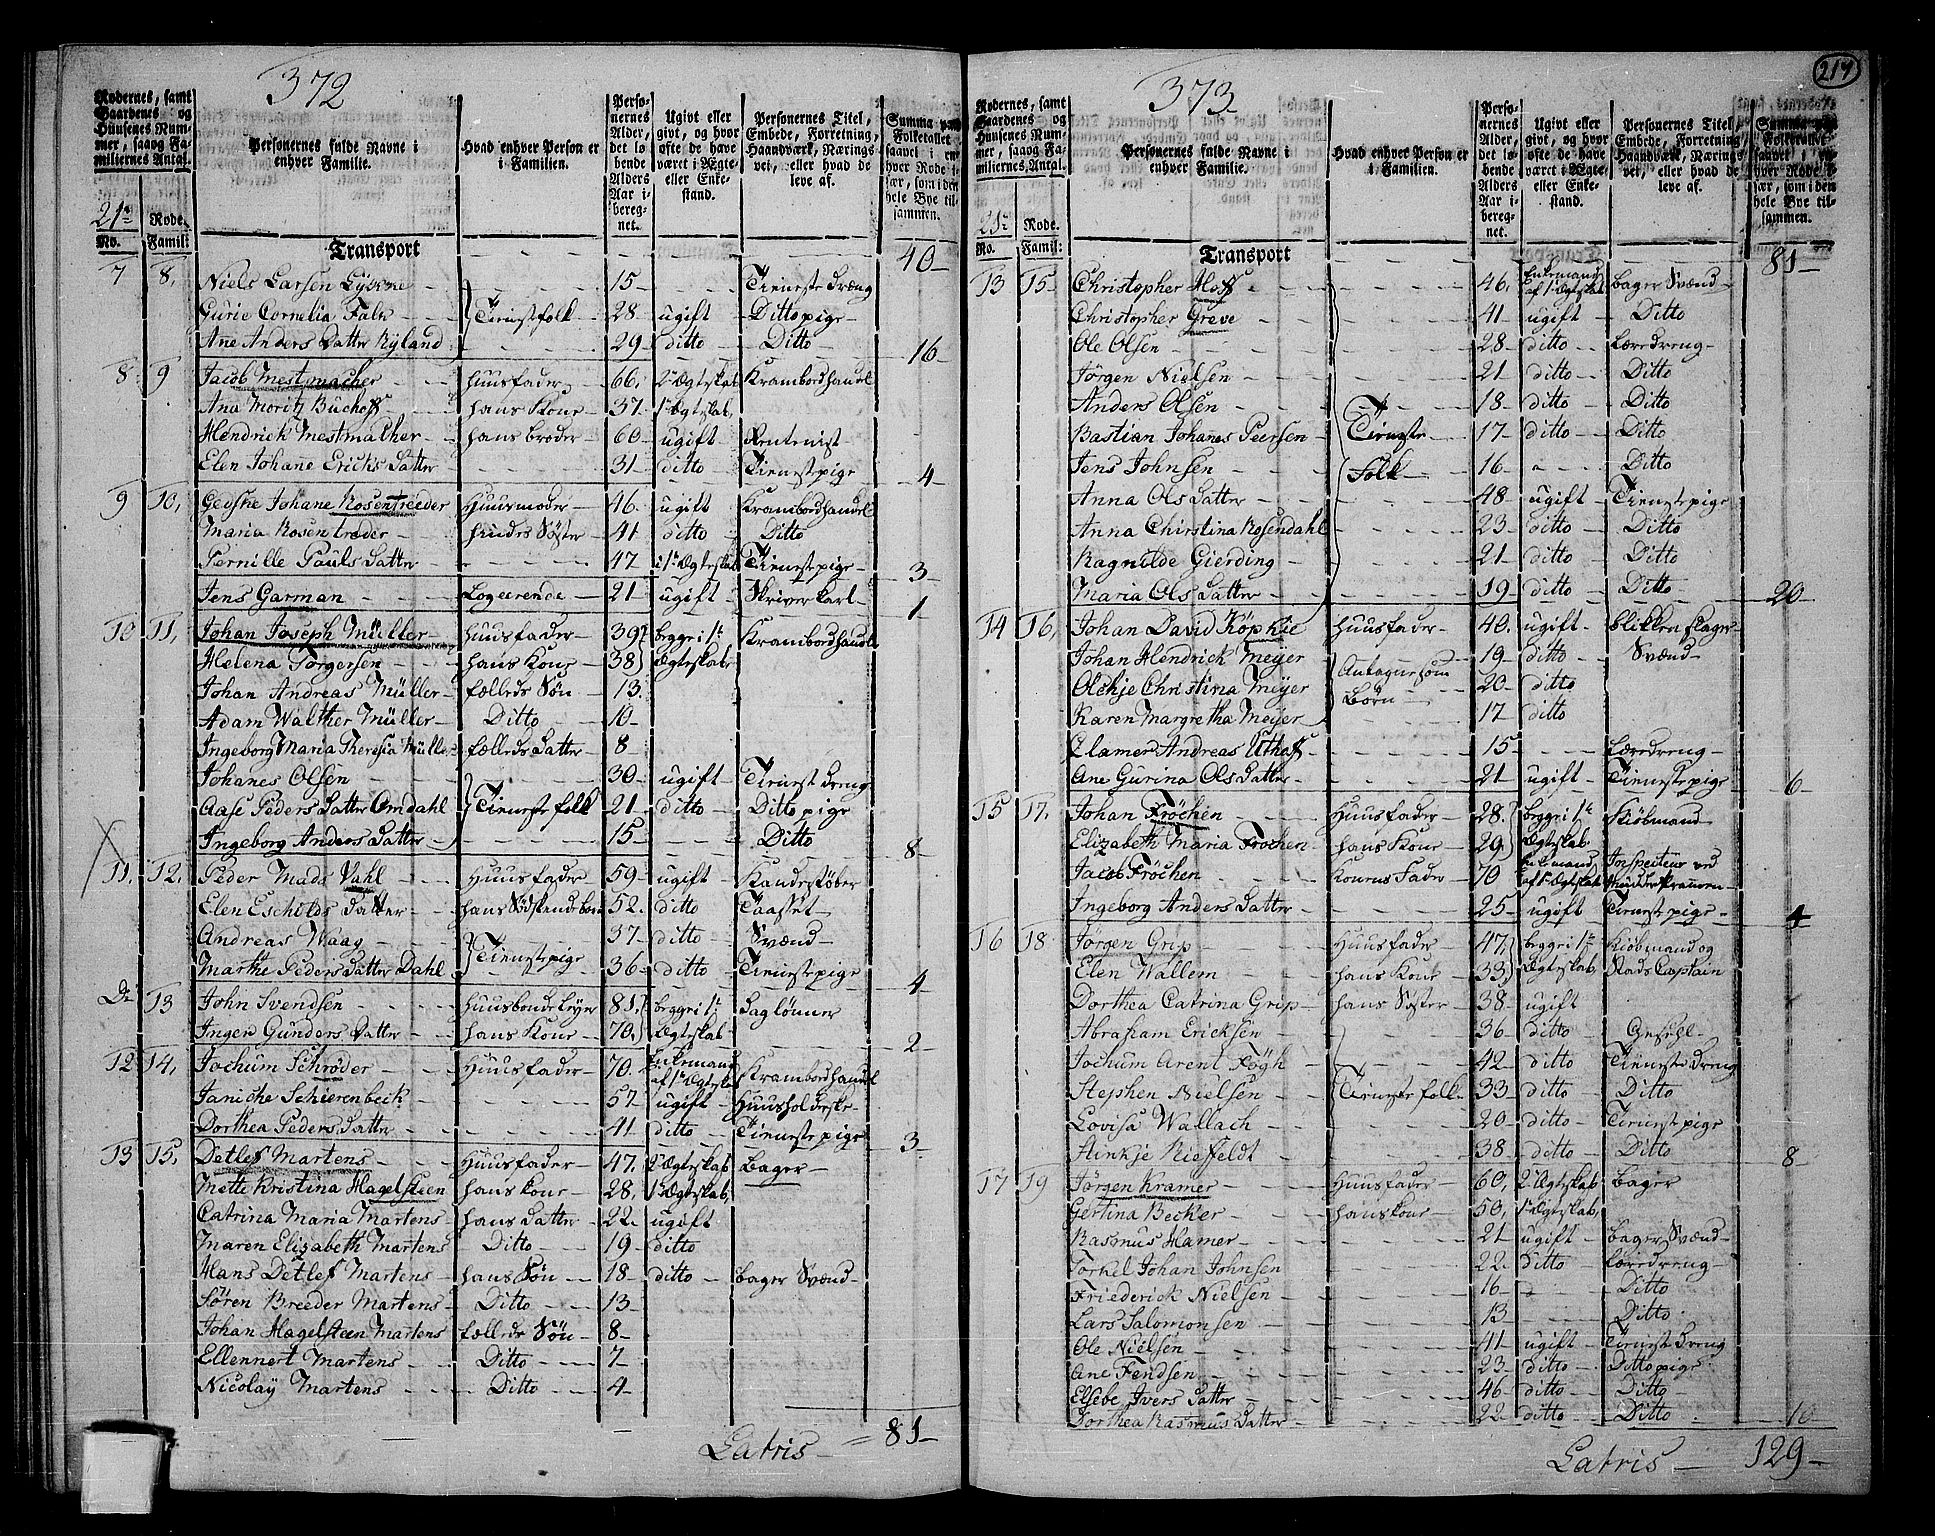 372
Rodernes, samt Gaardenes og Huusenes Nummer, saaog Familiernes Antal.
Personernes fulde Navne i enhver Familie.
Hvad enhver Person er i Familien.
Personernes Alder, det løbende Alders Aar iberegnet.
Ugivt eller givt, og hvor ofte de have været i Ægte- eller Enkestand.
Personernes Titel, Embede, Forretning, Haandværk, Næringsvei, eller hvad de leve af.
Summa paa Folketallet saavel i enhver Rode især, som i den hele Bye tilsammen.
21de Rode.
No. Famili:
Transport 40
7 8, Niels Larsen 15 Tieneste dræng
Gurie Cornelia Falk Tienestfolk 28 ugift Ditto pige
Ane Anders Datter Ryland 29 ditto Ditto 16
8 9 Jacob Mestmacher Huusfader 66, 2de Ægteskab Krambordhandel
Ana Moritz Buchoff hans Kone 37 1te Ægteskab
Hendrick Mestmacher hans broder 60 ugift Rentenist
Elen Johane Ericks Datter 31 ditto Tienestpige 4
9 10, Gedske Johane Rosentreeder Huusmoder 46 ugift Krambordhandel
Maria Rosentræder hendes Søster 41 ditto Ditto
Pernille Pauls Datter 47 i 1te Ægteskab Tienestpige 3
Jens Garman Logeerende 21 ugift Skriverkarl 1
10 11, Johan Joseph Müller Huusfader 39 begge i 1te Krambordhandel
Helena Torgersen hans Kone 38 Ægteskab
Johan Andreas Müller fælleds Søn 13
Adam Walther Müller Ditto 10
Ingeborg Maria Theresia Müller fælleds Datter 8
Johanes Olsen 30 ugift Tienest dreng
Aase Peders Datter Omdahl Tienestefolk 21 ditto Ditto pige
Ingeborg Anders Datter 15 Ditto 8
11, 12, Peder Mads Vahl Huusfader 59 ugift Kandestøber
Elen Escholds Datter hans Sødskendebarn 52 ditto
Andreas Waag 37 ditto Svænd
Marthe Peders Datter Dahl Tienestpige 36 ditto Tienestepige 4
Do 13 John Svendsen Huusbonde 81 begge i 1te Daglønner
Inger Gunders Datter hans Kone 70 Ægteskab 2
12 14, Jochum Schrøder Huusfader 70 Enkemand af 1te Ægtesk Krambordhandel
Janiche Schierenbeck 57 ugift Huusholderske
Dorthea Peders Datter 41 ditto Tienestepige 3
13 15, Detlef Martens Huusfader 47 2de Ægteskab Bager
Mette Kristina Hagelsteen hans kone 28 1te Ægteskab
Catrina Maria Martens hans Datter 22 ugift
Maren Elizabeth Martens Ditto 19 ditto
Hans Detlef Martens hans Søn 18 ditto bager Svænd
Søren Breeder Martens Ditto 13
Johan Hagelsteen Martens fælleds Søn 8
Ellennert Martens Ditto 7
Nicolay Martens Ditto 4
Latris 81
373
217
Rodernes, samt Gaardenes og Huusenes Nummer, saaog Familiernes Antal.
Personernes fulde Navne i enhver Familie.
Hvad enhver Person er i Familien.
Personernes Alder, det løbende Alders Aar iberegnet.
Ugivt eller givt, og hvor ofte de have været i Ægte- eller Enkestand.
Personernes Titel, Embede, Forretning, Haandværk, Næringsvei, eller hvad de leve af.
Summa paa Folketallet saavel i enhver Rode især, som i den hele Bye tilsammen.
21de Rode.
No. Famil:
Transport 81
13 15 Christopher Hoff 46 Enkemand af 1te Ægteskab bager Svænd
Christopher Greve 41 ugift Ditto
Ole Olsen 28 ditto Læredreng
Jörgen Nielsen 21 ditto Ditto
Anders Olsen 18 ditto Ditto
Bastian Johanes Peersen Tieneste 17 ditto Ditto
Jens Johnsen Folk 16 Ditto
Anna Ols Datter 48 ugift Tienestepige
Anna Christina Rosendahl 23 ditto Ditto
Ragnilde Gierding 21 ditto Ditto
Maria Ols Datter 19 ditto Ditto 20
14 16, Johan David Köpkie Huusfader 40 ugift blikkenslager
Johan Hendrick Meyer 19 ditto Svænd
Olchje Christina Meyer Antagne som Børn 20 ditto
Karen Margretha Meyer 17 ditto
Clamer Andreas Uthoff 15 Læredreng
Ane Gurina Ols Datter 21 ugift Tienestepige 6
15 17, Johan Fröchen Huusfader 28 begge i 1te Kiöbmand
Elizabeth Maria Fröchen hans Kone 29 Ægteskab
Jacob Fröchen Konens Fader 70 Enkemand af 1te Ægteskab Inspecteur ved
Ingeborg Anders Datter 25 ugift Tienestepige 4
16 18 Jörgen Grip Huusfader 47 begge i 1te Kiöbmand og
Elen Wallem hans Kone 33 Ægteskab Stads Captain
Dorthea Catrina Grip hans Søster 38 ugift
Abraham Ericksen 36 ditto
Jochum Arent Fögh 42 ditto Tieneste dreng
Stephen Nielsen Tienestefolk 33 ditto Ditto
Lovisa Wallach 20 ditto Tienestpige
Stinkje Riefeldt 38 ditto Ditto 8
17 19 Jörgen Kramer Huusfader 60 2de Ægteskab bager
Gertina Becker hans kone 50 1te Ægteskab
Rasmus Hamer 21 ugift bager Svænd
Torkel Johan Johnsen 22 ditto Læredreng
Friederick Nielsen 16 Ditto
Lars Salomonsen 13 Ditto
Ole Nielsen 41 ugift Tienest dreng
Ane Fendsen 23 ditto Ditto pige
Elsebe Ivers Datter 46 ditto Ditto
Dorthea Rasmus Datter 22 ditto Ditto 10
Latris 129